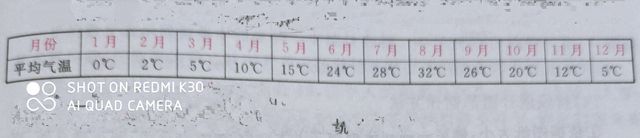 月份 1月 2月 3月 4月 5月 6月 7月 8月 9月 10月 11月 12月
平均气温 0℃ 2℃ 5℃ 10℃ 15℃ 24℃ 28℃ 32℃ 26℃ 20℃ 12℃ 5℃
SHOT ON REDMI K30
AI QUAD CAMERA